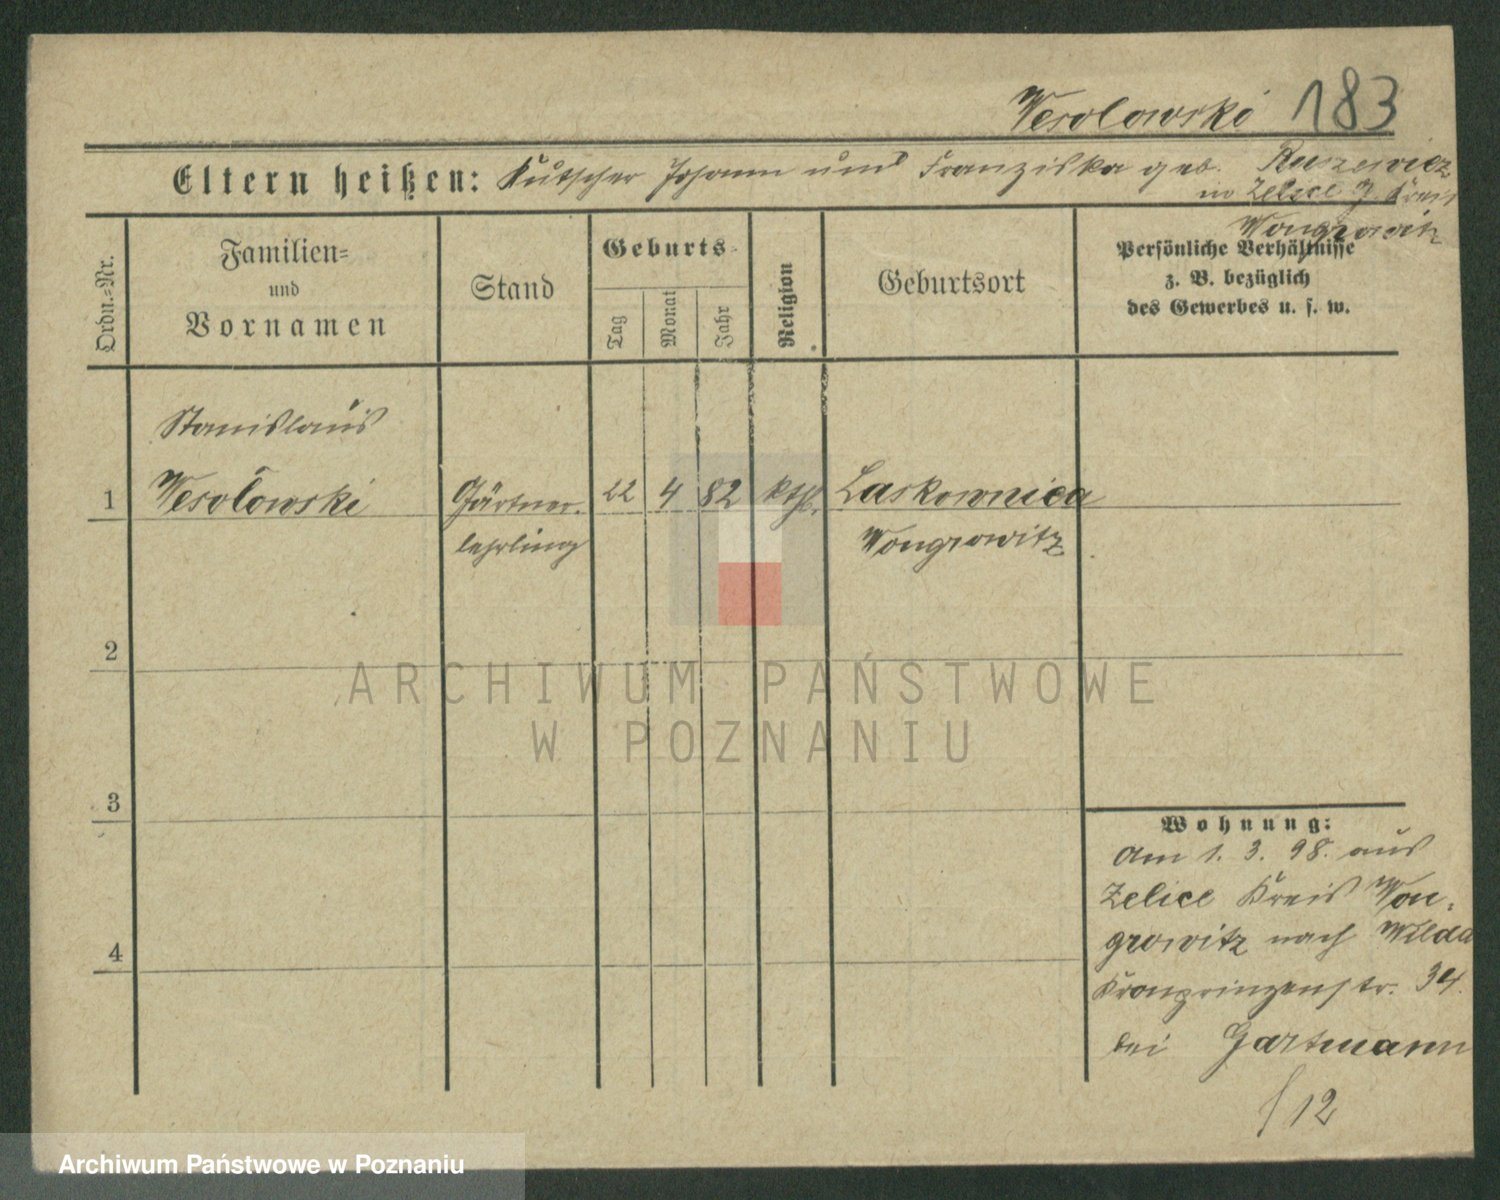 Wesolowski 183
Eltern heißen: Kutscher Johann und Franziska geb. Ruszewicz
in Zelice G. Kreis
Wongrowitz
Ordn.=Nr.
Familien=
und
Vornamen
Stand
Geburts=
Tag
Monat
Jahr
Religion
Geburtsort
Persönliche Verhältnisse
z. B. bezüglich
des Gewerbes u. s. w.
Stanislaus
1 Wesołowski Gärtner- 22 4 82 kth. Laskownica
lehrling Wongrowitz
2
ARCHIWUM PAŃSTWOWE
W POZNANIU
3
Wohnung:
Am 1. 3. 98. aus
Zelice Kreis Won-
growitz nach Wilda
Kronprinzenstr. 34.
bei Gartmann
4
/12
Archiwum Państwowe w Poznaniu